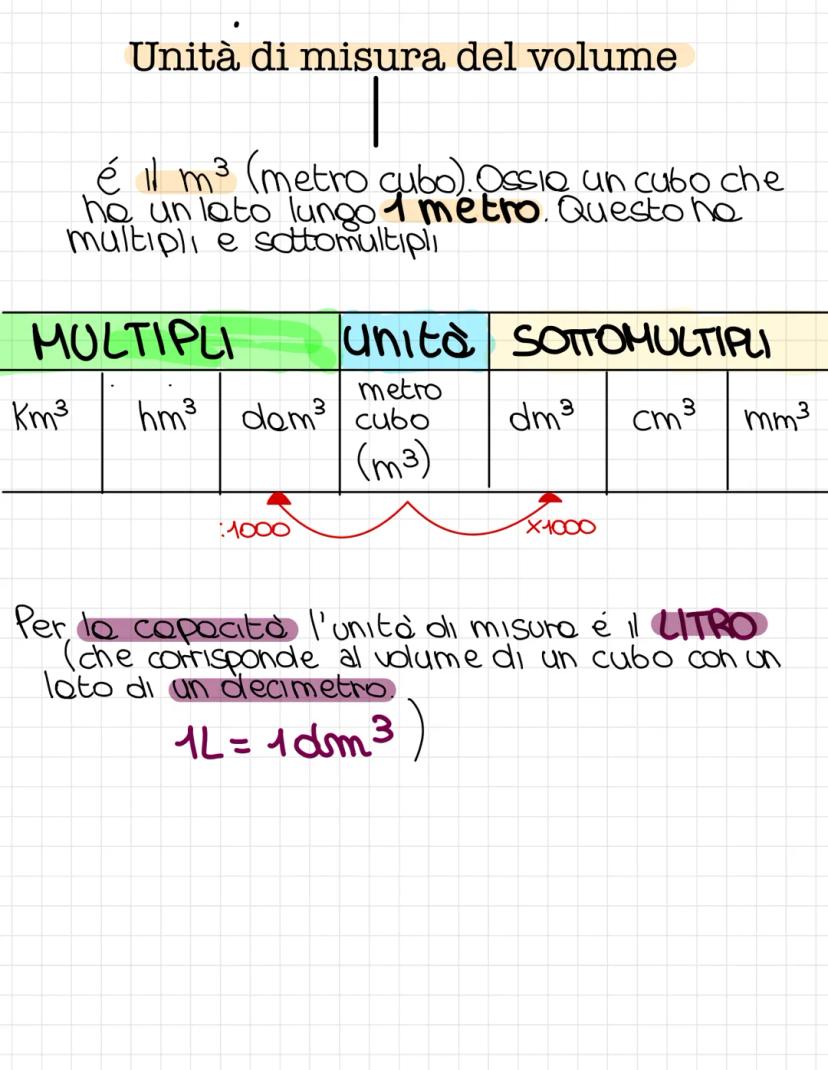 Unità di misura del volume
é il m³ (metro cubo). Ossia un cubo che
ha un lato lungo 1 metro. Questo ha
multipli e sottomultipli
MULTIPLI unità SOTTOMULTIPLI
Km³ hm³ dam³ metro cubo (m³) dm³ cm³ mm³
:1000 x1000
Per la capacità l'unità di misura é il LITRO
(che corrisponde al volume di un cubo con un
lato di un decimetro.
1L = 1dm³)